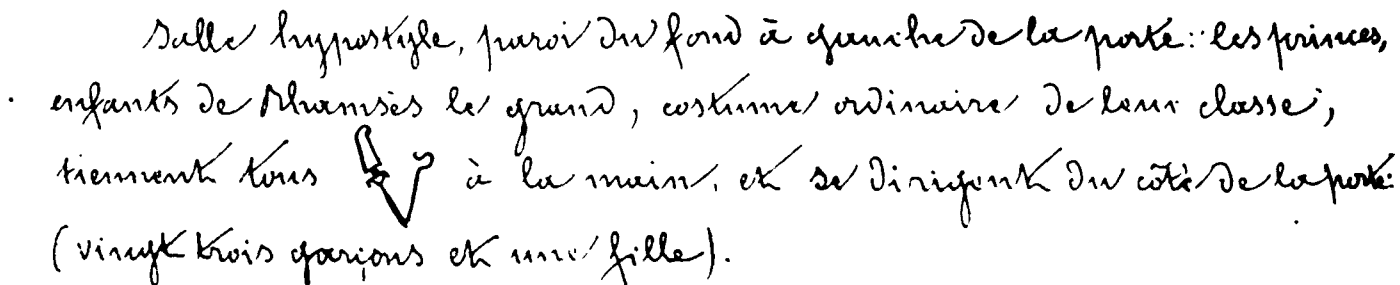 Salle hypostyle, paroi du fond à gauche de la porte: les princes,
enfants de Rhamsès le grand, costume ordinaire de leur classe,
tiennent tous à la main, et se dirigent du côté de la porte:
(vingt trois garçons et une fille).